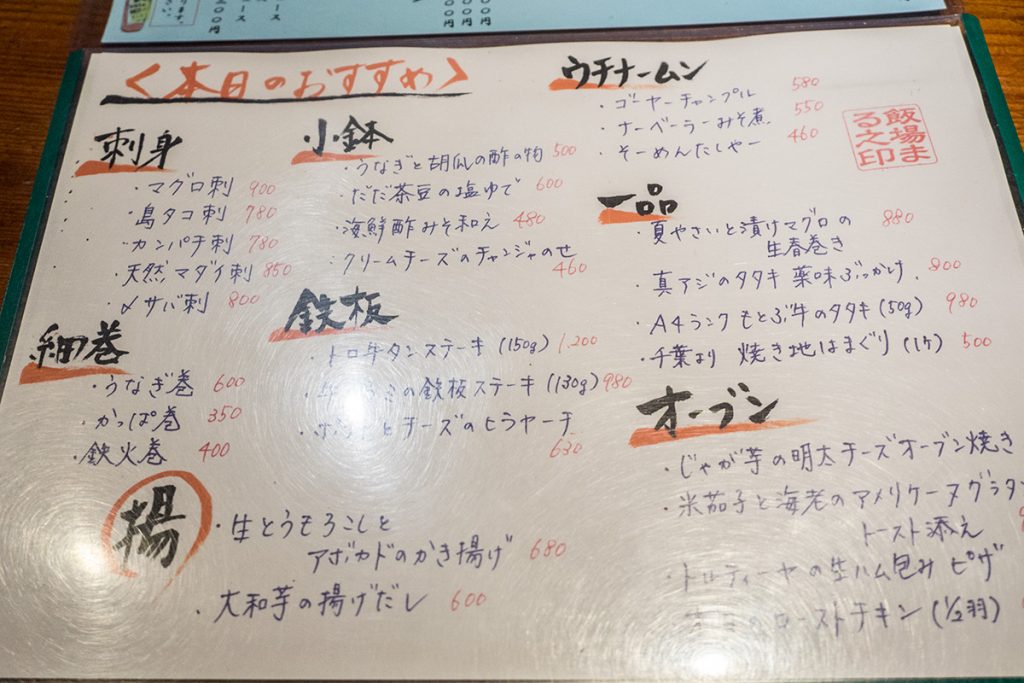 本日のおすすめ
刺身
・マグロ刺 900
・島タコ刺 780
・カンパチ刺 780
・天然マダイ刺 850
・〆サバ刺 800
細巻
・うなぎ巻 600
・かっぱ巻 350
・鉄火巻 400
小鉢
・うなぎと胡瓜の酢の物 500
・だだ茶豆の塩ゆで 600
・海鮮酢みそ和え 480
・クリームチーズのチャンジャのせ
460
鉄板
・トロ牛タンステーキ(150g) 1,200
の鉄板ステーキ(130g) 980
とチーズのヒラヤーチ
630
揚
・生とうもろこしと
アボカドのかき揚げ 680
・大和芋の揚げだし 600
ウチナームン
・ゴーヤーチャンプル 580
・ナーベーラーみそ煮 550
・そーめんたしゃー 460
飯場ま
る之印
一品
・夏やさいと漬けマグロの 880
生春巻き
・真アジのタタキ 薬味ぶっかけ 800
・A4ランクもとぶ牛のタタキ(50g) 980
・千葉より 焼き地はまぐり(1ケ) 500
オーブン
・じゃが芋の明太チーズオーブン焼き
・米茄子と海老のアメリケーヌグラタン
トースト添え
・トルティーヤの生ハム包み ピザ
のローストチキン(1/2羽)